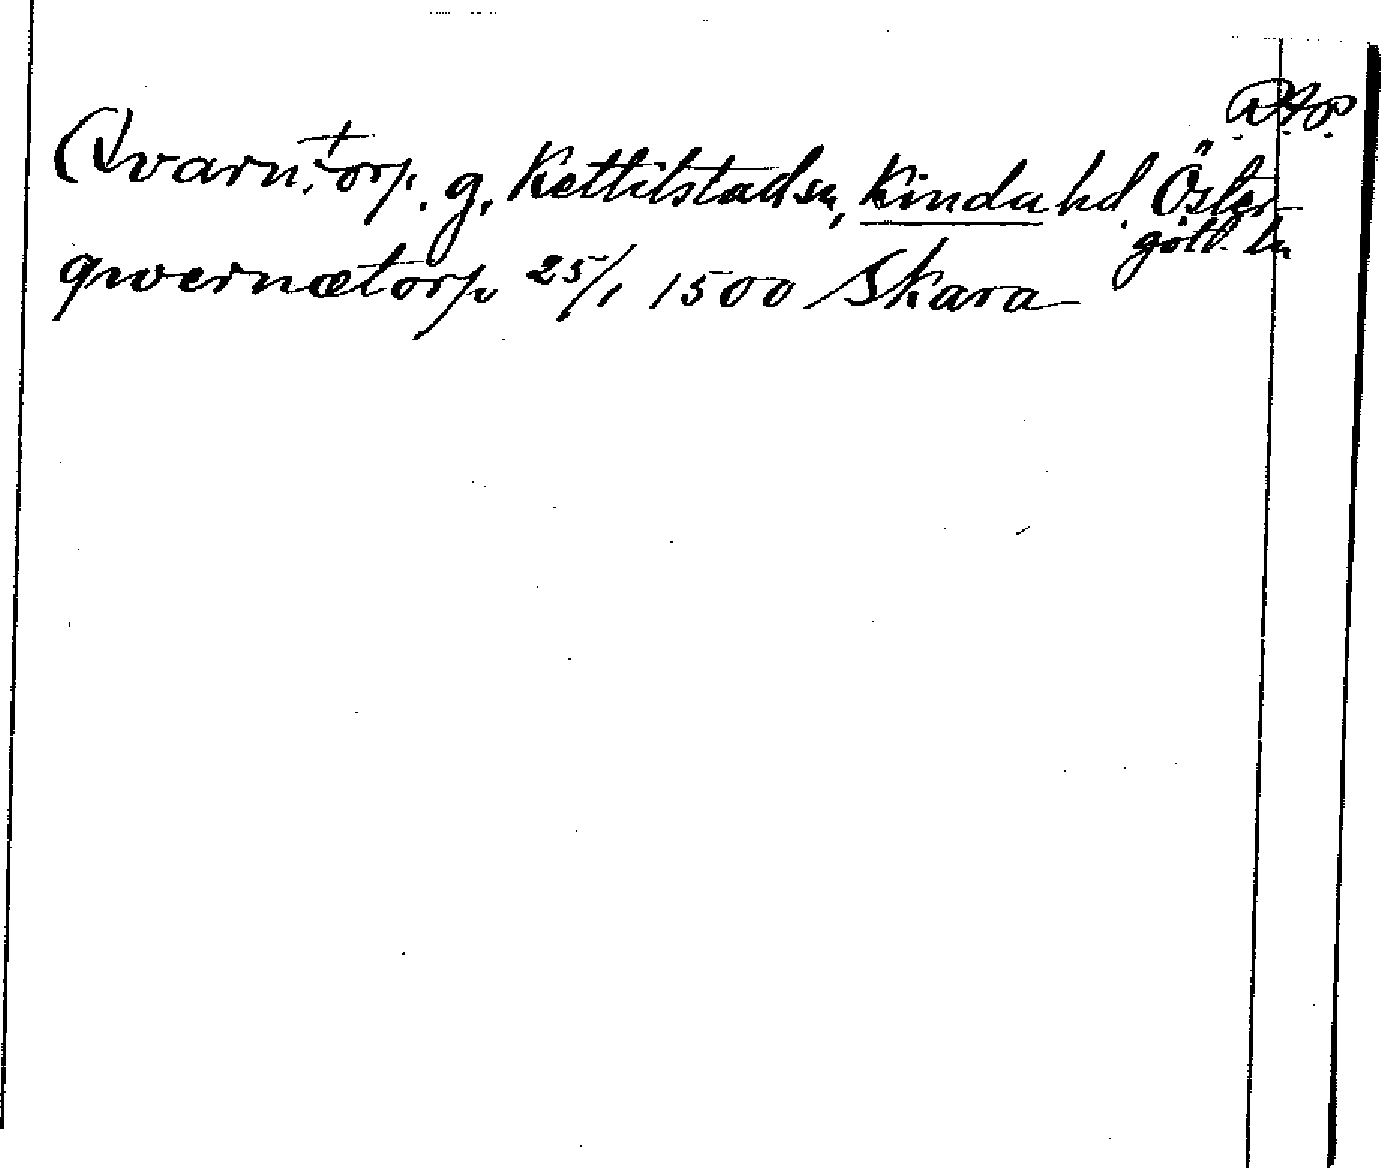 R.A.P.
Qvarntorp. g. Kettilstad sn, Kinda hd. Öster-
götl. ln
qwernætorp 25/1 1500 Skara